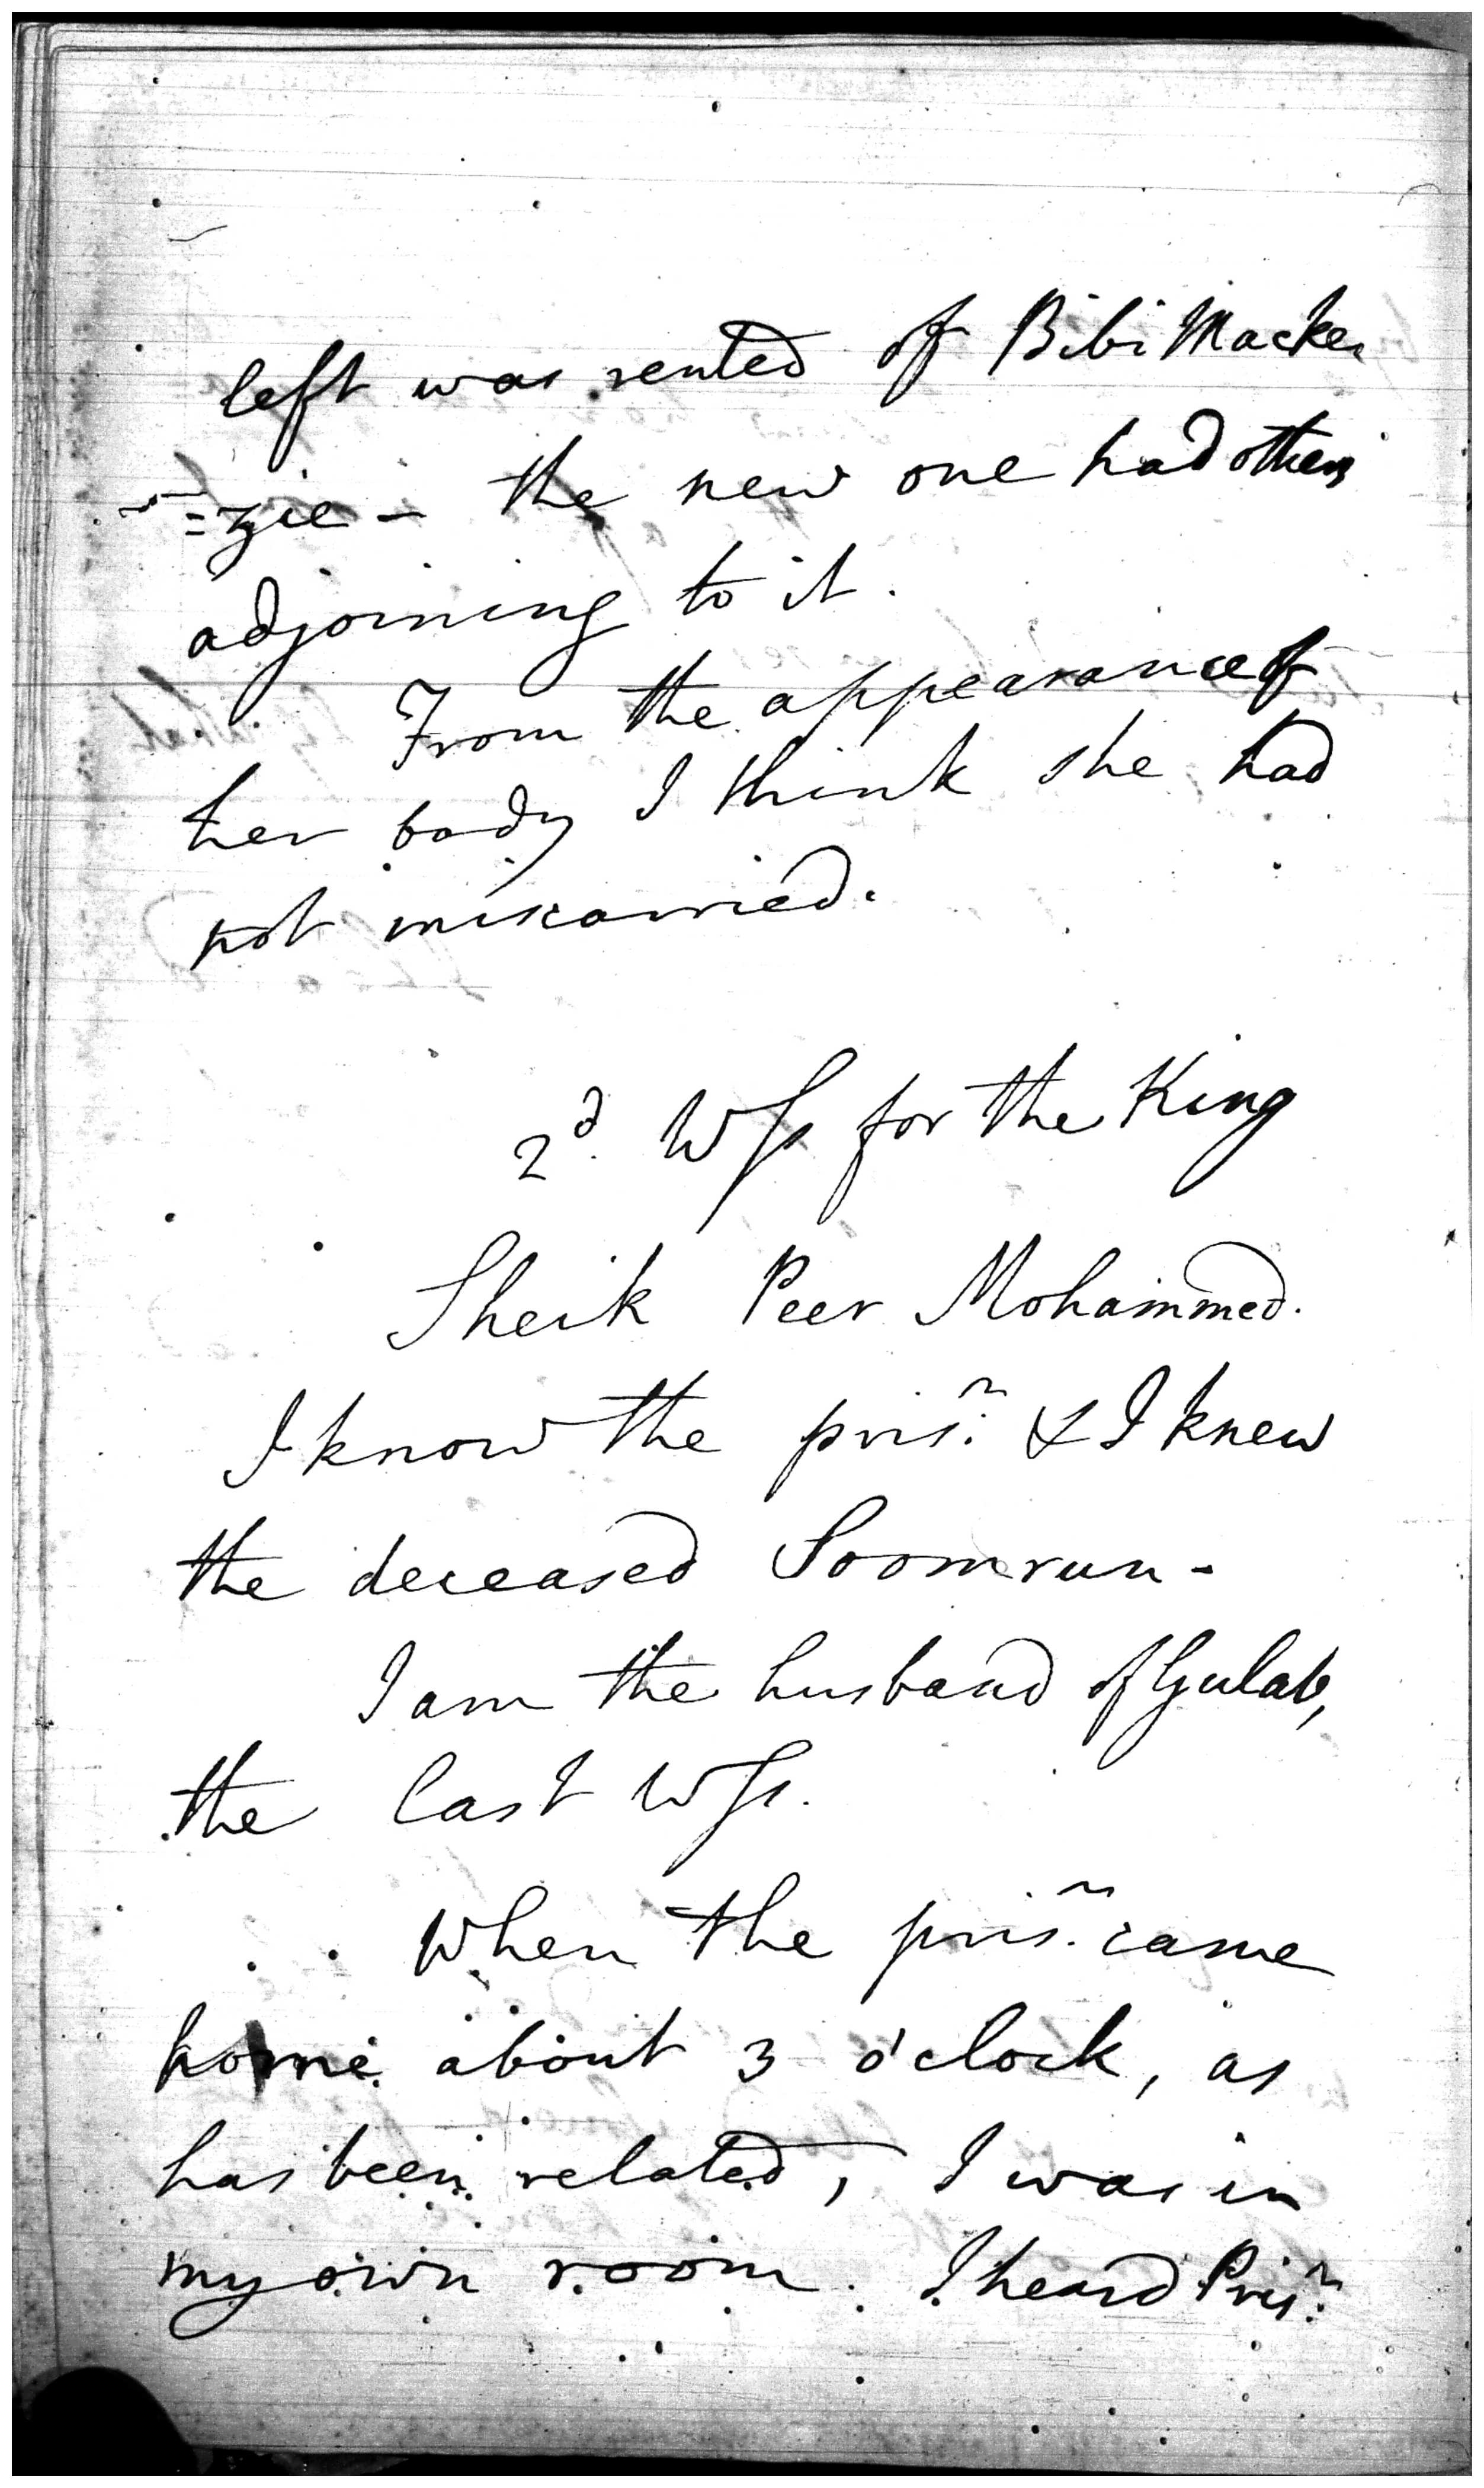 left was rented of Bibi Macken
=zie - the new one had others
adjoining to it.
From the appearance of
her body I think she had
not miscarried.
2d. Wss for the King
Sheik Peer Mohammed.
I know the prisr. & I knew
the deceased Soomrun -
I am the husband of Gulab,
the last Wss.
When the prisr. came
home about 3 o'clock, as
has been related, I was in
my own room. I heard Prisr.